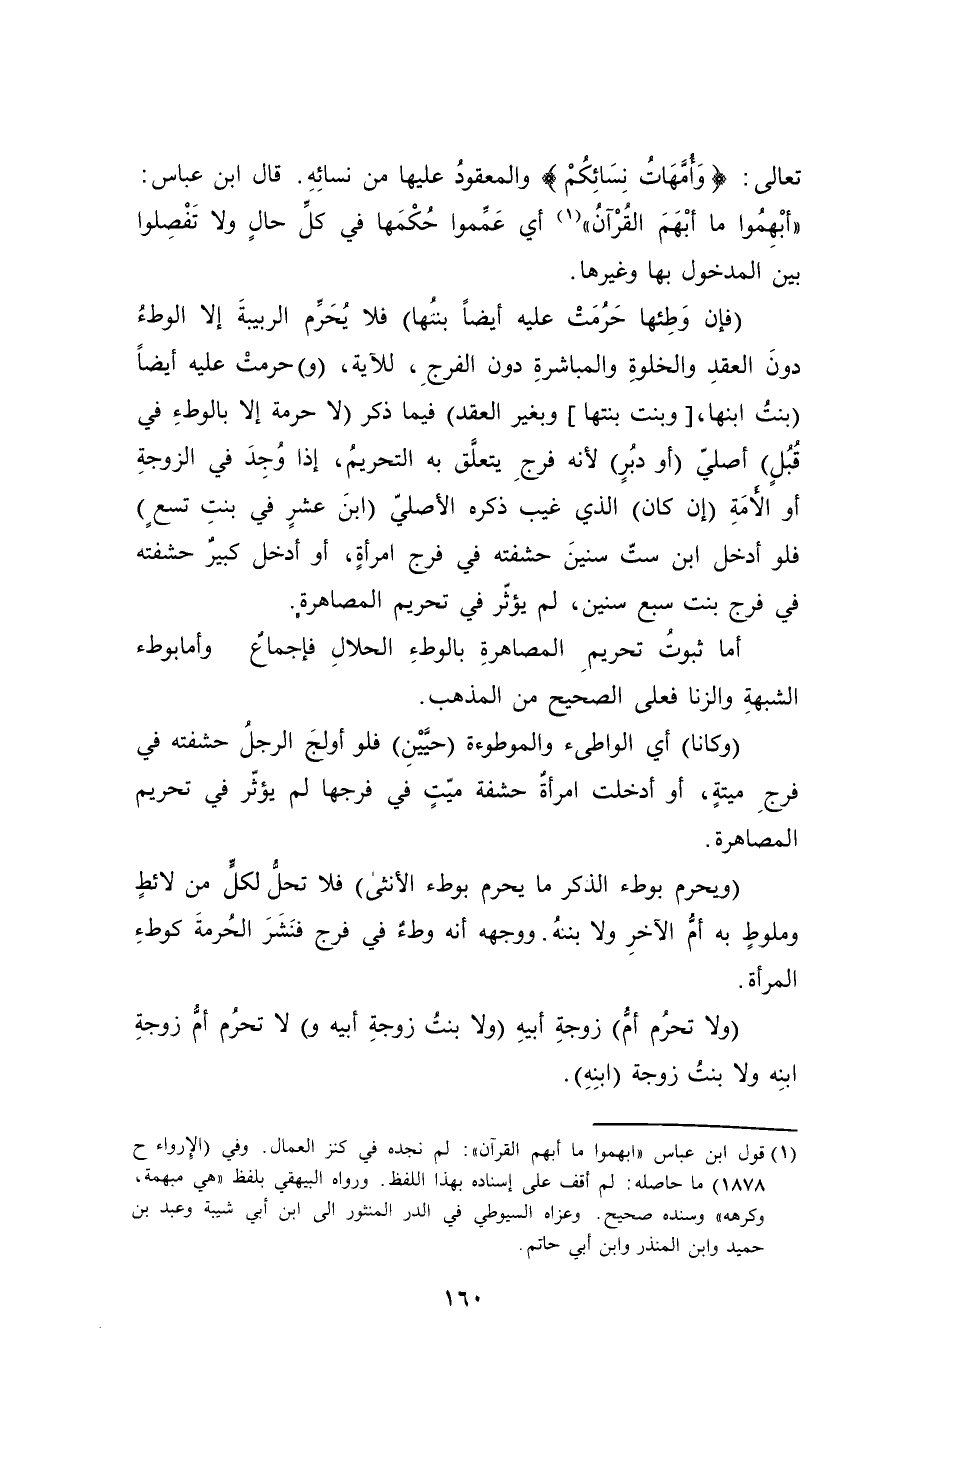 تعالى: ﴿وَأُمَّهَاتُ نِسَائِكُمْ﴾ والمعقودُ عليها من نسائِهِ. قال ابن عباس:
«أبْهِمُوا ما أبْهَمَ القُرْآنُ»(١) أي عَمِّموا حُكْمَها في كلِّ حالٍ ولا تَفْصِلوا
بين المدخول بها وغيرها.
(فإن وَطِئها حَرُمَتْ عليه أيضاً بنتُها) فلا يُحَرِّم الربيبةَ إلا الوطءُ
دونَ العقدِ والخلوةِ والمباشرةِ دون الفرجِ، للآية، (و)حرمتْ عليه أيضاً
(بنتُ ابنها،[ وبنت بنتها] وبغير العقد) فيما ذكر (لا حرمة إلا بالوطءِ في
قُبُلٍ) أصليّ (أو دبُرٍ) لأنه فرجٍ يتعلَّق به التحريمُ، إذا وُجِدَ في الزوجةِ
أو الأَمَةِ (إن كان) الذي غيب ذكره الأصليّ (ابنَ عشرٍ في بنتِ تسعٍ)
فلو أدخل ابن ستّ سنينَ حشفته في فرج امرأةٍ، أو أدخل كبيرٌ حشفته
في فرج بنت سبع سنين، لم يؤثّر في تحريم المصاهرة.
أما ثبوتُ تحريمِ المصاهرةِ بالوطءِ الحلالِ فإجماعٌ وأمابوطء
الشبهةِ والزنا فعلى الصحيح من المذهب.
(وكانا) أي الواطىء والموطوءة (حيَّيْنِ) فلو أولجَ الرجلُ حشفته في
فرجِ ميتةٍ، أو أدخلت امرأةٌ حشفة ميّتٍ في فرجها لم يؤثّر في تحريم
المصاهرة.
(ويحرم بوطء الذكر ما يحرم بوطء الأنثىٰ) فلا تحلُّ لكلٍّ من لائطٍ
وملوطٍ به أمُّ الآخرِ ولا بنتهُ. ووجهه أنه وطءٌ في فرج فنَشَرَ الحُرمةَ كوطءِ
المرأة.
(ولا تحرُم أمُّ) زوجةِ أبيهِ (ولا بنتُ زوجةِ أبيه و) لا تحرُم أمُّ زوجةِ
ابنِه ولا بنتُ زوجة (ابنِهِ).
(١) قول ابن عباس «ابهموا ما أبهم القرآن»: لم نجده في كنز العمال. وفي (الإرواء ح
١٨٧٨) ما حاصله: لم أقف على إسناده بهذا اللفظ. ورواه البيهقي بلفظ «هي مبهمة،
وكرهه» وسنده صحيح. وعزاه السيوطي في الدر المنثور الى ابن أبي شيبة وعبد بن
حميد وابن المنذر وابن أبي حاتم.
١٦٠